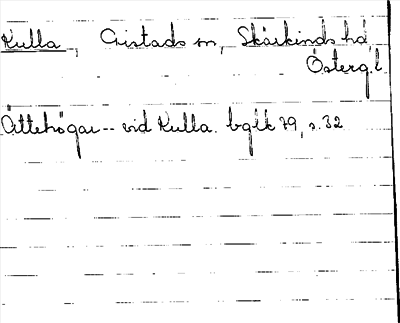 Kulla, Gistads sn, Skärkinds hd,
Österg.l
Ättehögar -- vid Kulla. bglk 79, s. 32.